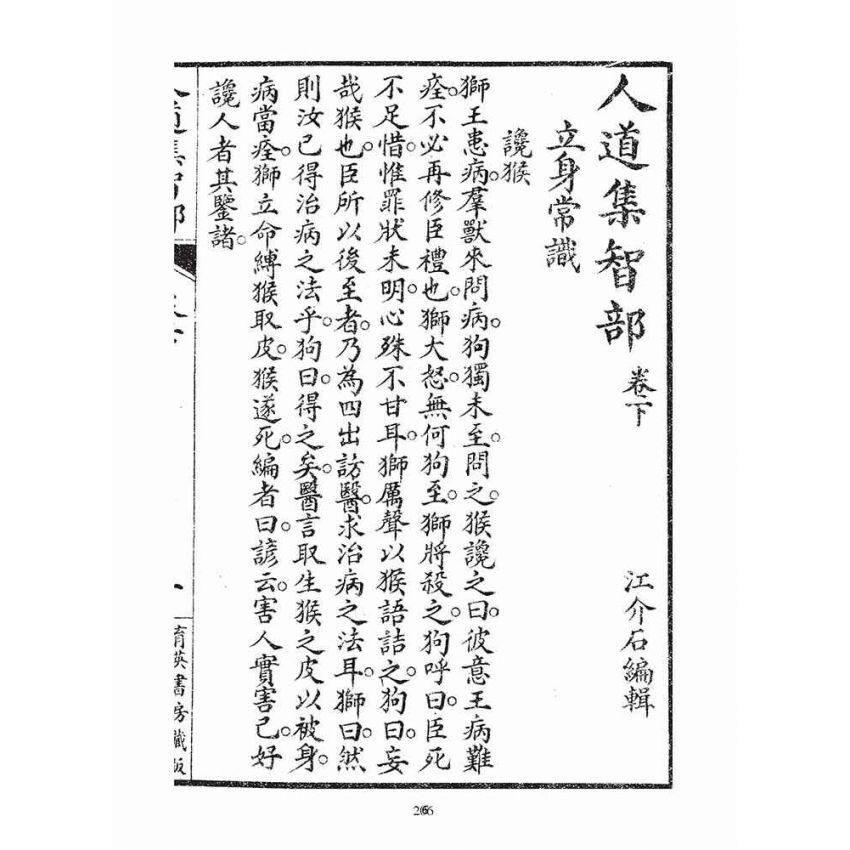 人道集智部 卷下 江介石編輯
立身常識
讒猴
獅王患病。羣獸來問病。狗獨未至。問之。猴讒之曰。彼意王病難
痊。不必再修臣禮也。獅大怒。無何狗至。獅將殺之。狗呼曰。臣死
不足惜。惟罪狀未明。心殊不甘耳。獅厲聲以猴語詰之。狗曰。妄
哉猴也。臣所以後至者。乃為四出訪醫。求治病之法耳。獅曰。然
則汝已得治病之法乎。狗曰。得之矣。醫言取生猴之皮以被身。
病當痊。獅立命縛猴取皮。猴遂死。編者曰。諺云。害人實害己。好
讒人者其鑒諸。
人道集智部
卷下
一
育英書房藏版